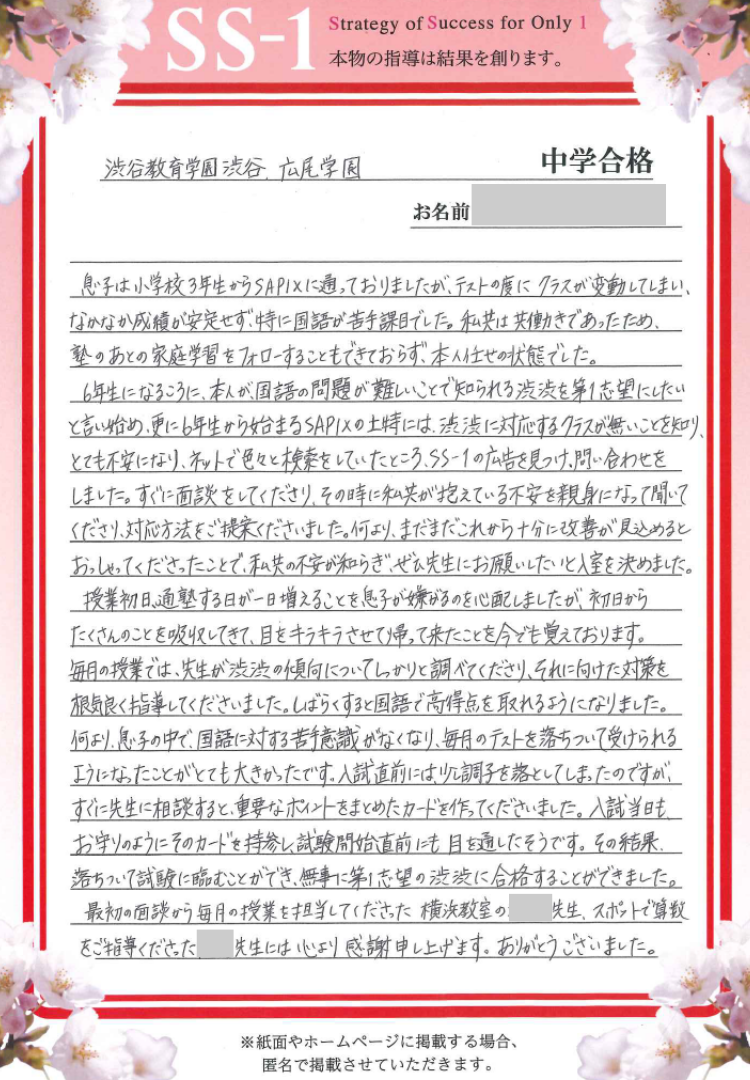 SS-1
Strategy of Success for Only 1
本物の指導は結果を創ります。
渋谷教育学園渋谷、広尾学園
中学合格
お名前
息子は小学校3年生からSAPIXに通っておりましたが、テストの度にクラスが変動してしまい、
なかなか成績が安定せず、特に国語が苦手課目でした。私共は共働きであったため、
塾のあとの家庭学習をフォローすることもできておらず、本人任せの状態でした。
6年生になるころに、本人が、国語の問題が難しいことで知られる渋渋を第1志望にしたい
と言い始め、更に6年生から始まるSAPIXの土特には、渋渋に対応するクラスが無いことを知り、
とても不安になり、ネットで色々と検索をしていたところ、SS-1の広告を見つけ、問い合わせを
しました。すぐに面談をしてくださり、その時に私共が抱えている不安を親身になって聞いて
くださり、対応方法をご提案くださいました。何より、まだまだこれから十分に改善が見込めると
おっしゃってくださったことで、私共の不安が和らぎ、ぜひ先生にお願いしたいと入室を決めました。
授業初日、通塾する日が一日増えることを息子が嫌がるのを心配しましたが、初日から
たくさんのことを吸収してきて、目をキラキラさせて帰って来たことを今でも覚えております。
毎月の授業では、先生が渋渋の傾向についてしっかりと調べてくださり、それに向けた対策を
根気良く指導してくださいました。しばらくすると国語で高得点を取れるようになりました。
何より、息子の中で、国語に対する苦手意識がなくなり、毎月のテストを落ちついて受けられる
ようになったことがとても大きかったです。入試直前には少し調子を落としてしまったのですが、
すぐに先生に相談すると、重要なポイントをまとめたカードを作ってくださいました。入試当日も、
お守りのようにそのカードを持参し、試験開始直前にも目を通したそうです。その結果、
落ちついて試験に臨むことができ、無事に第1志望の渋渋に合格することができました。
最初の面談から毎月の授業を担当してくださった横浜教室の 先生、スポットで算数
をご指導くださった 先生には心より感謝申し上げます。ありがとうございました。
※紙面やホームページに掲載する場合、
匿名で掲載させていただきます。